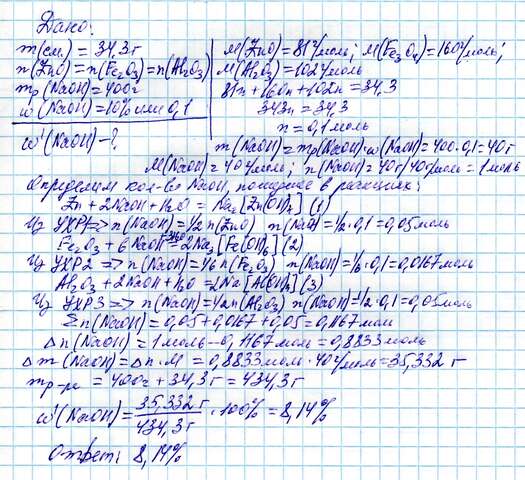 Дано:
m(см.) = 34,3 г
n(ZnO) = n(Fe₂O₃) = n(Al₂O₃)
mр(NaOH) = 400г
ω(NaOH) = 10% или 0,1
ω'(NaOH) - ?
M(ZnO) = 81 г/моль; M(Fe₂O₃) = 160 г/моль;
M(Al₂O₃) = 102 г/моль
81n + 160n + 102n = 34,3
343n = 34,3
n = 0,1 моль
m(NaOH) = mр(NaOH)·ω(NaOH) = 400·0,1 = 40г
M(NaOH) = 40 г/моль; n(NaOH) = 40г/40г/моль = 1 моль
Определим кол-во NaOH, в реакциях:
Zn + 2NaOH + H₂O = Na₂[Zn(OH)₄] (1)
Из УХР1 => n(NaOH) = 1/2 n(ZnO) n(NaOH) = 1/2·0,1 = 0,05 моль
Fe₂O₃ + 6NaOH + 3H₂O = 2Na₃[Fe(OH)₆] (2)
Из УХР2 => n(NaOH) = 1/6 n(Fe₂O₃) n(NaOH) = 1/6·0,1 = 0,0167 моль
Al₂O₃ + 2NaOH + H₂O = 2Na[Al(OH)₄] (3)
Из УХР3 => n(NaOH) = 1/2 n(Al₂O₃) n(NaOH) = 1/2·0,1 = 0,05 моль
Σn(NaOH) = 0,05 + 0,0167 + 0,05 = 0,1167 моль
Δn(NaOH) = 1 моль - 0,1167 моль = 0,8833 моль
Δm(NaOH) = Δn·M = 0,8833 моль·40 г/моль = 35,332 г
mр-ра = 400г + 34,3г = 434,3г
ω'(NaOH) = 35,332 г / 434,3 г · 100% = 8,14%
Ответ: 8,14%